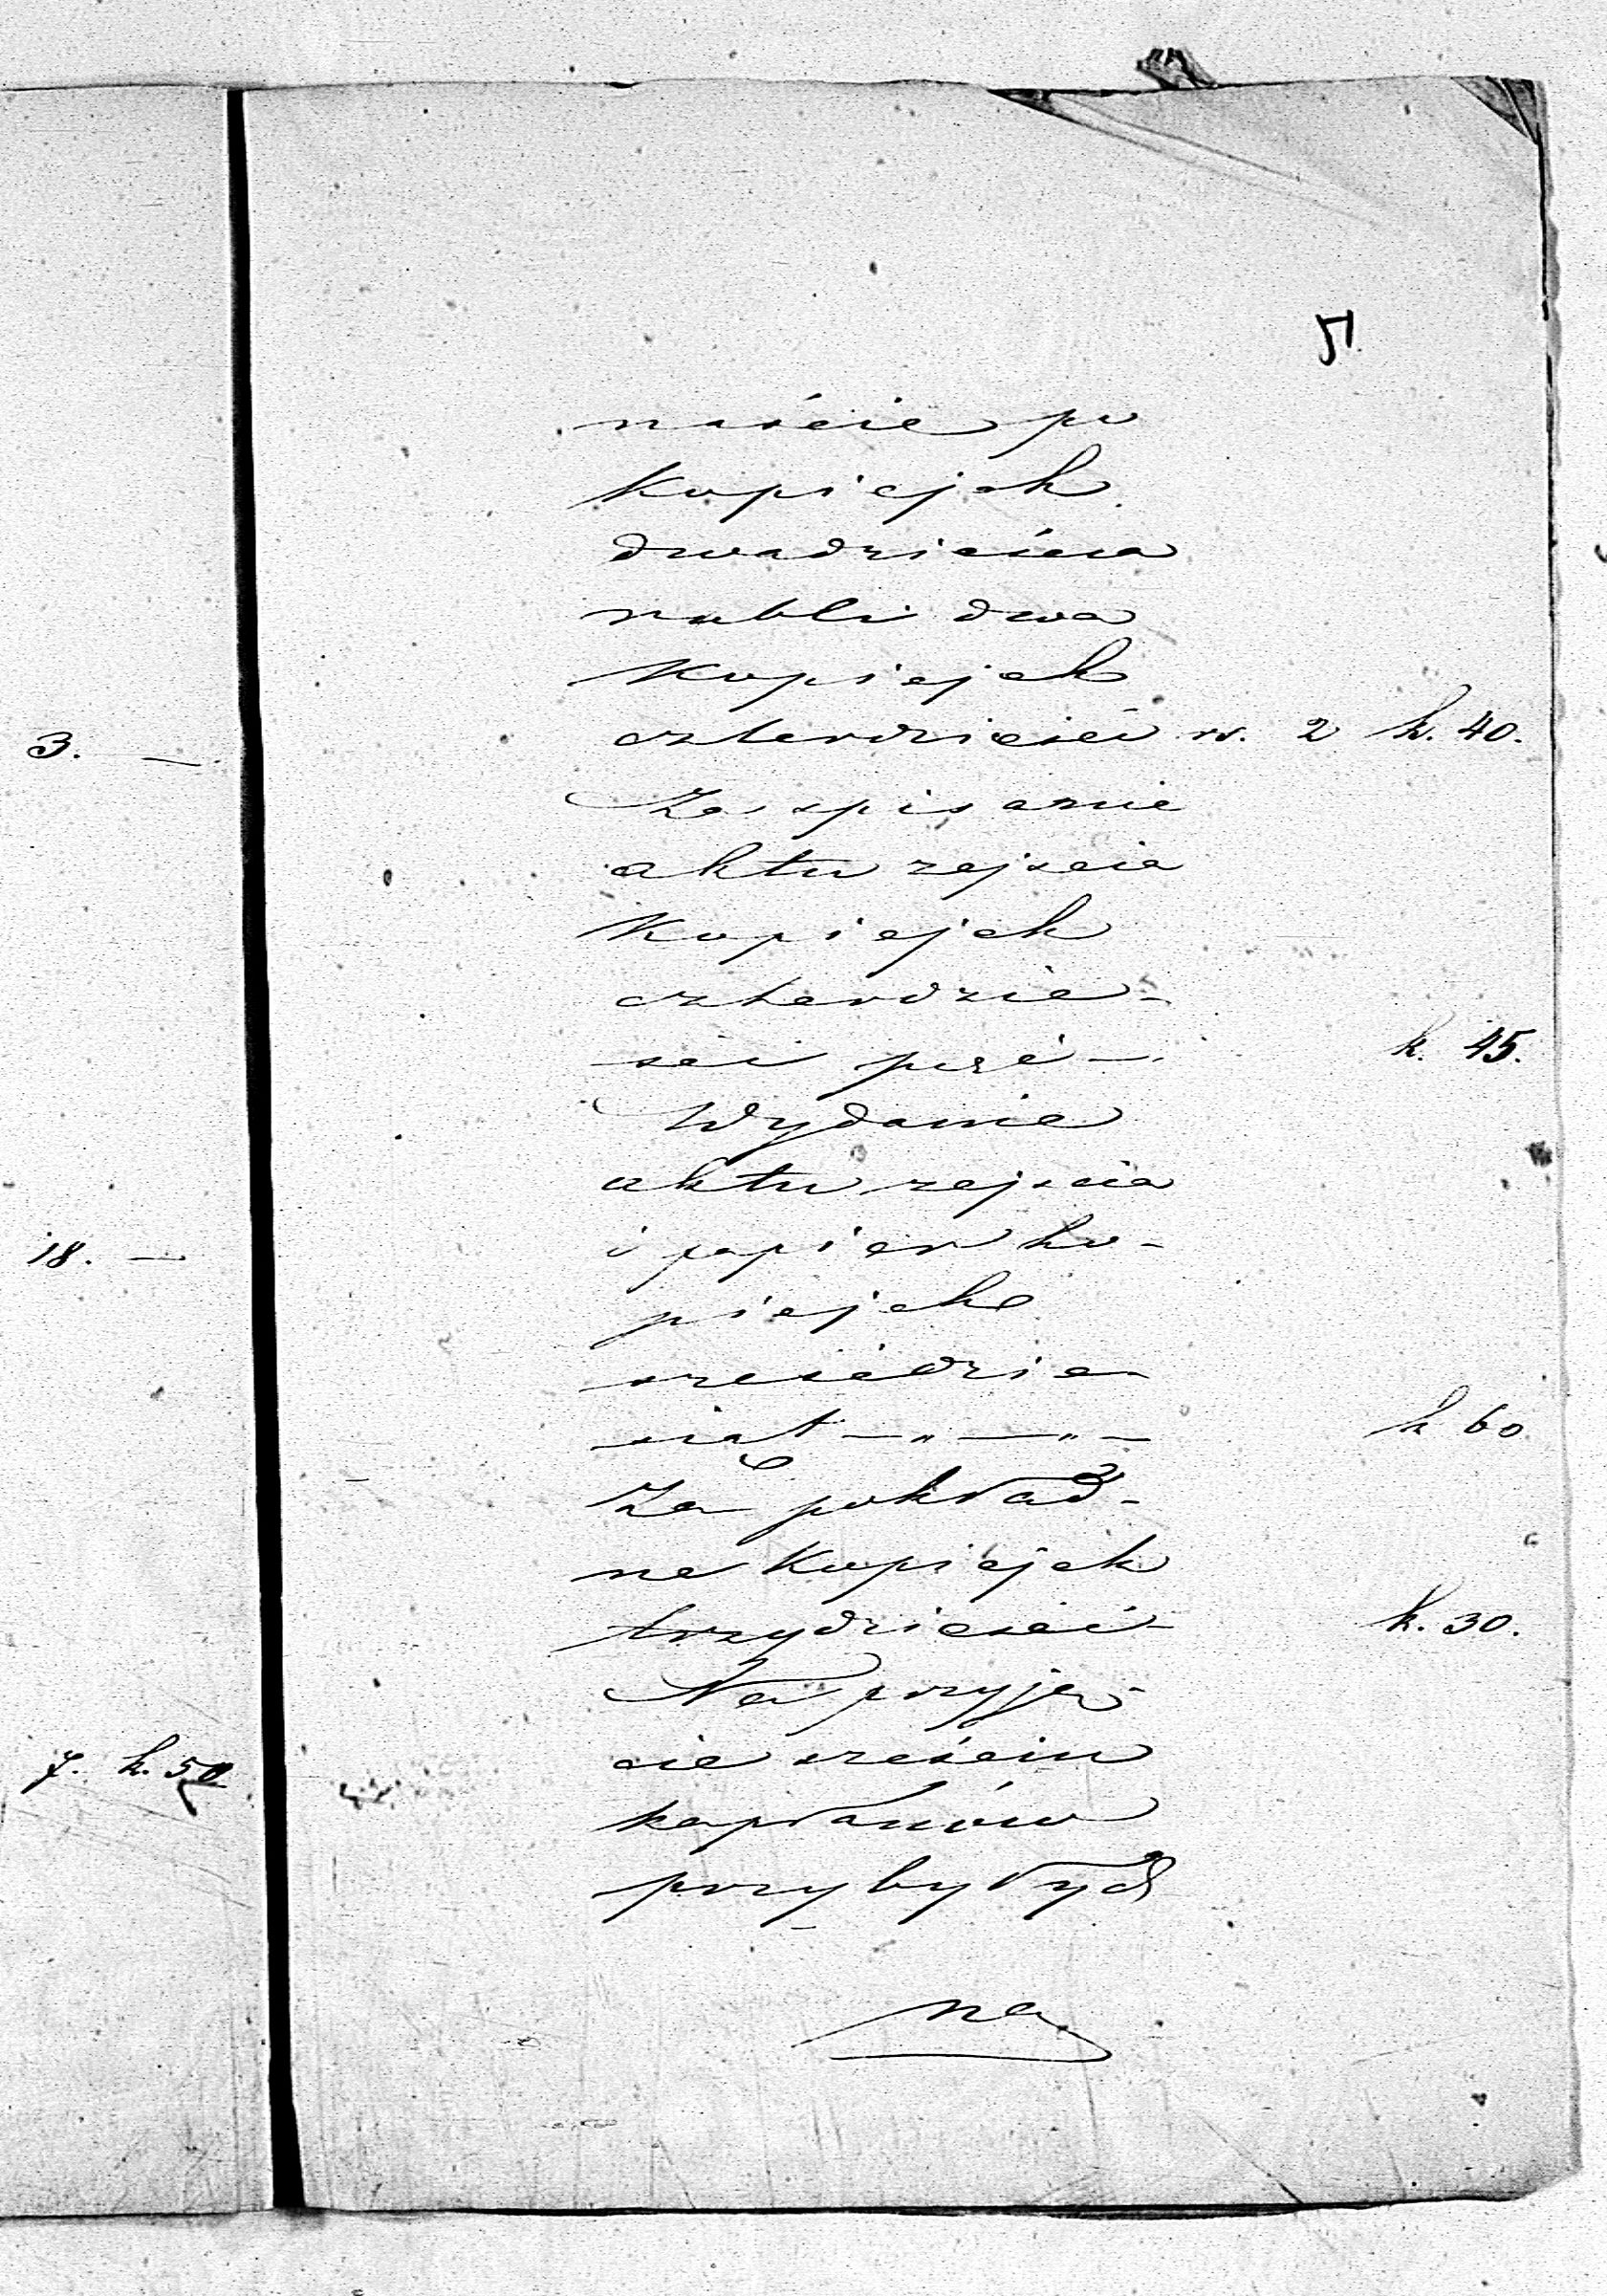 51.
naście po
kopiejek
dwadzieścia
rubli dwa
kopiejek
czterdzieści r. 2 k. 40.
Za spisanie
aktu zejscia
kopiejek
czterdzie-
ści pięć — k. 45.
Wydanie
aktu zejścia
i papier ko-
piejek
sześćdzie-
siąt — „ — „ — k 60
Za pokład-
ne kopiejek
trzydzieści - k. 30.
Na przyję-
cie sześciu
kapłanów
przybyłych
na
3. —
18. —
7. k. 50